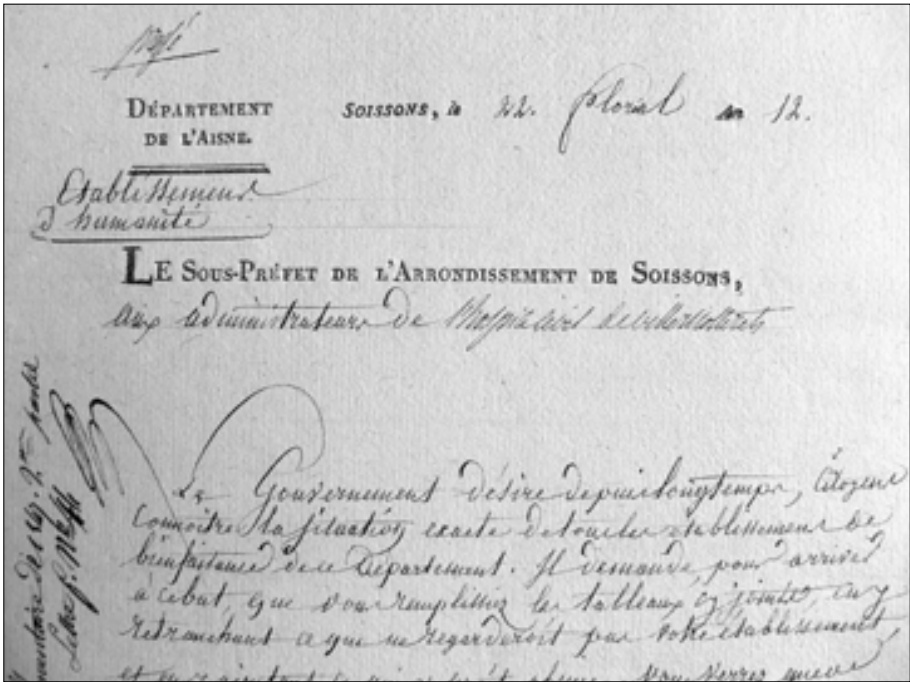 DÉPARTEMENT
DE L'AISNE.
SOISSONS, le 22. floréal an 12.
Etablissemens
d'humanité
LE SOUS-PRÉFET DE L'ARRONDISSEMENT DE SOISSONS,
aux administrateurs de l'hospice civil de villerscotterets
Le Gouvernement désire depuis longtemps, Citoyens
Connoître la situation exacte de tous les établissemens de
bienfaisance de ce Département. Il demande, pour arriver
à ce but, que vous remplissiez les tableaux cy joints, en y
retranchant ce qui ne regarderoit pas votre établissement,
et en y ajoutant